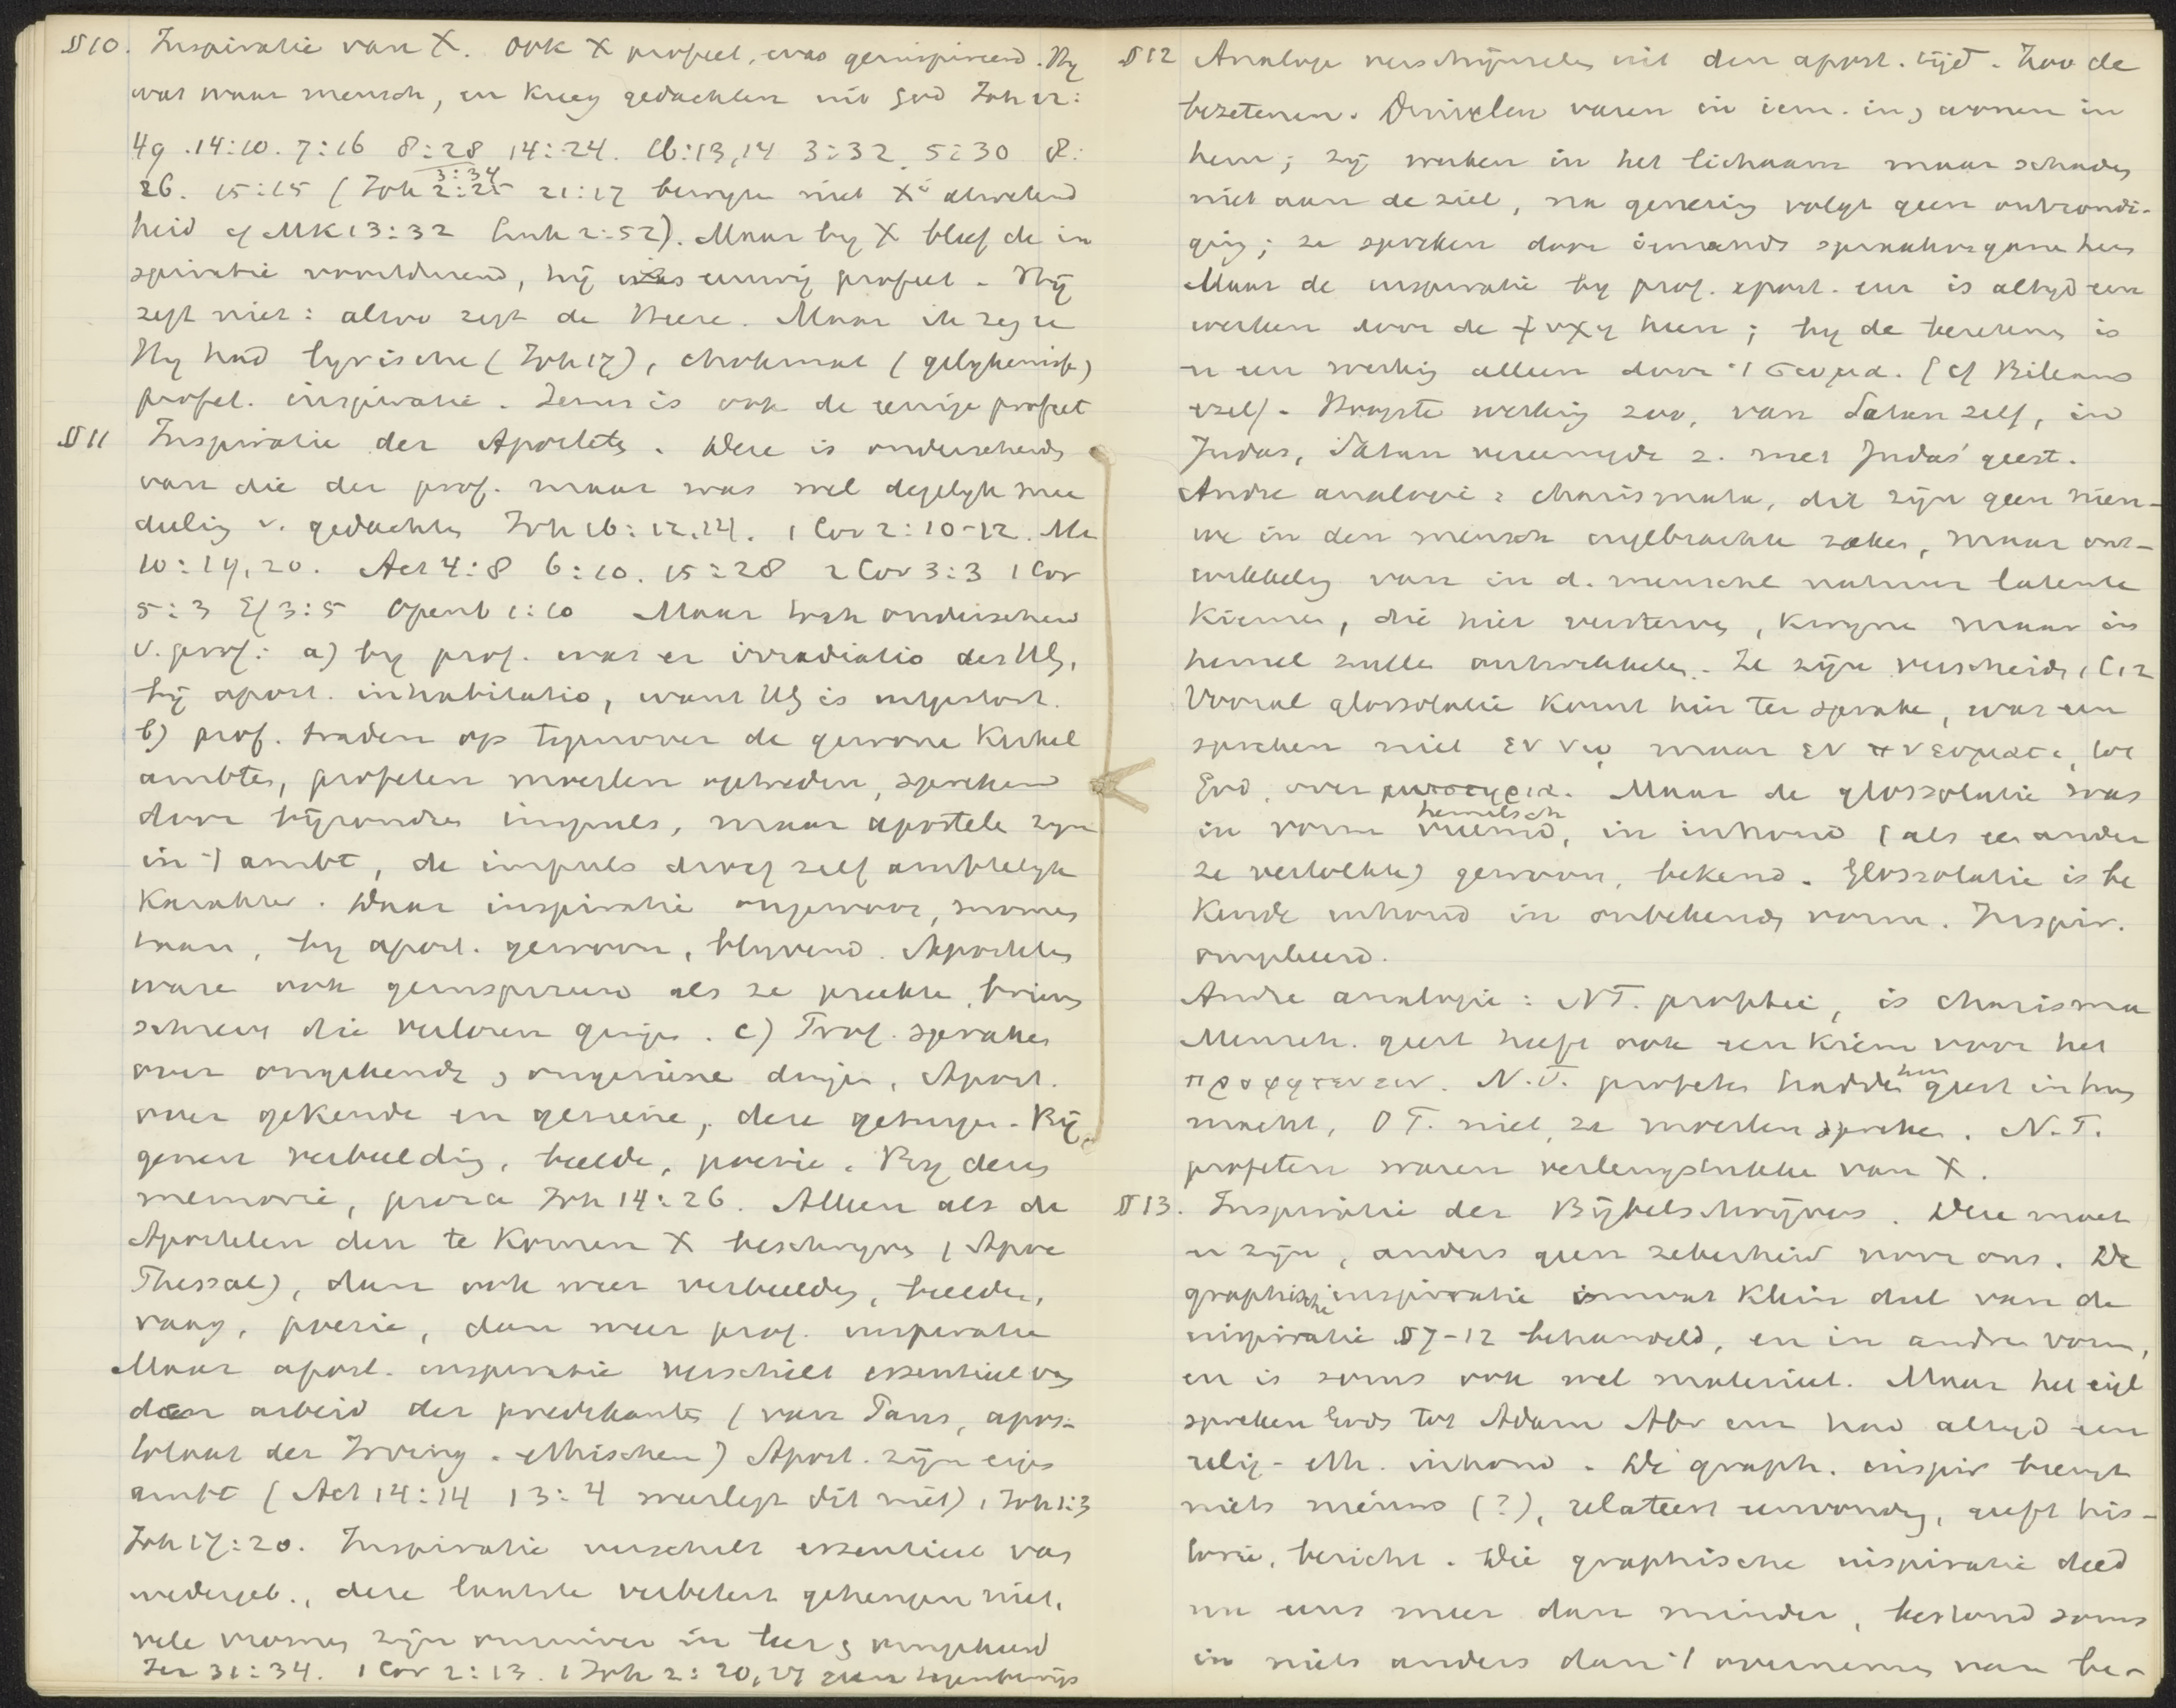 §10. Inspiratie van X. Ook X profeet, was geinspireerd. Hy
was waar mensch, en kreeg gedachten uit God Joh 12:
49. 14:10. 7:16 8:28 14:24. 16:13,14 3:32 5:30 8:
3:34
26. 15:15 (Joh 2:25 21:17 bewyzen niet X's alwetend
heid cf Mk 13:32 Luk 2:52). Maar by X bleef de in
spiratie voortdurend, hij was eenig profeet. Hij
zegt niet: alzoo zegt de Heere. Maar ik zeg u
Hy had lyrische (Joh 17), chokmat (gelykenisse)
profet. inspiratie. Jezus is ook de eenige profeet
§11 Inspiratie der Apostels. Deze is onderscheiden
van die der prof. maar was wel degelyk mee
deling v. gedachten Joh 16:12,14. 1 Cor 2:10-12. Mt
10:19,20. Act 4:8 6:10. 15:28 2 Cor 3:3 1 Cor
5:3 Ef 3:5 Openb 1:10 Maar toch onderscheid
v. prof: a) by prof. was er irradiatio des HG,
bij apost. inhabitatio, want HG is uitgestort.
b) prof. traden op tegenover de gewone kerkel
ambten, profeten moesten optreden, spreken
door bijzondren impuls, maar apostele zyn
in 't ambt, de impuls droeg zelf ambtelyk
karakter. Waar inspiratie ongewoon, momen
taan, by apost. gewoon, blyvend. Apostelen
ware ook geinspireerd als ze preekte, brieven
schreven die verloren gingen. c) Prof. spraken
over ongekende en ongeziene dingen, Apost.
over gekende en geziene, deze getuigen. Bij
genen verbeelding, beelde, poezie. By dezen
memorie, proza Joh 14:26. Alleen als de
Apostelen den te komen X beschryven (Apoc
Thessal), dan ook weer verbeelding, beelden,
vaag, poezie, dan weer prof. inspiratie
Maar apost. inspiratie verschilt essentieel van
den arbeid der predikanten (van Paus, apos-
tolaat der Irving. ethischen) Apost. zijn eigen
ambt (Act 14:14 13:4 weerlegt dit niet) 1 Joh 1:3
Joh 17:20. Inspiratie verschilt essentieel van
wedergeb., deze laatste verbetert geheugen niet,
vele vromen zijn onzuiver in leer en omgekeerd
Jer 31:34. 1 Cor 2:13. 1 Joh 2:20,27 geen tegenbewijs
§12 Analoge verschijnselen uit den apost. tijd. Zoo de
bezetenen. Duivelen varen in iem. in en wonen in
hem; zij werken in het lichaam maar schaden
niet aan de ziel, na genezing volgt geen ontzondi-
ging; ze spreken door iemands spraakorganen heen
Maar de inspiratie by prof. apost. enz is altyd een
werken door de ψυχη heen; by de bezetenen is
er een werking alleen door 't σωμα. (cf Bileams
ezel). Hoogste werking zoo, van Satan zelf, in
Judas, Satan vereenigde z. met Judas' geest.
Andre analogie: charismata, dit zijn geen nieu-
we in den mensch ingebrachte zaken, maar ont-
wikkeling van in d. menschel natuur latente
kiemen, die hier versterven, kwijnen maar in
hemel zullen ontwikkelen. Ze zijn verscheiden, 1 C 12
Vooral glossolalie komt hier ter sprake, was een
spreken niet εν νω maar εν πνευματι, tot
God, over μυστηρια. Maar de glossolalie was
hemelsch
in vorm vreemd, in inhoud (als een ander
ze vertolkte) gewoon, bekend. Glossolalie is be
kende inhoud in onbekenden vorm. Inspir.
omgekeerd.
Andre analogie: NT. prophetie, is charisma
Mensch. geest heeft ook een kiem voor het
προφητευειν. N.T. profeten hadden hun geest in hun
macht, OT. niet, ze moesten spreken. N.T.
profeten waren verlengstukken van X.
§13. Inspiratie der Bijbelschrijvers. Deze moet
er zijn, anders geen zekerheid voor ons. De
graphische inspiratie is maar klein deel van de
inspiratie §7-12 behandeld, en in andren vorm,
en is soms ook wel materieel. Maar het eigl
spreken Gods tot Adam Abr enz had altyd een
relig-eth. inhoud. De graph. inspir brengt
niets nieuws (?), relateert eenvoudig, geeft his-
torie, bericht. Die graphische inspiratie deed
nu eens meer dan minder, bestond soms
in niets anders dan 't overnemen van be-